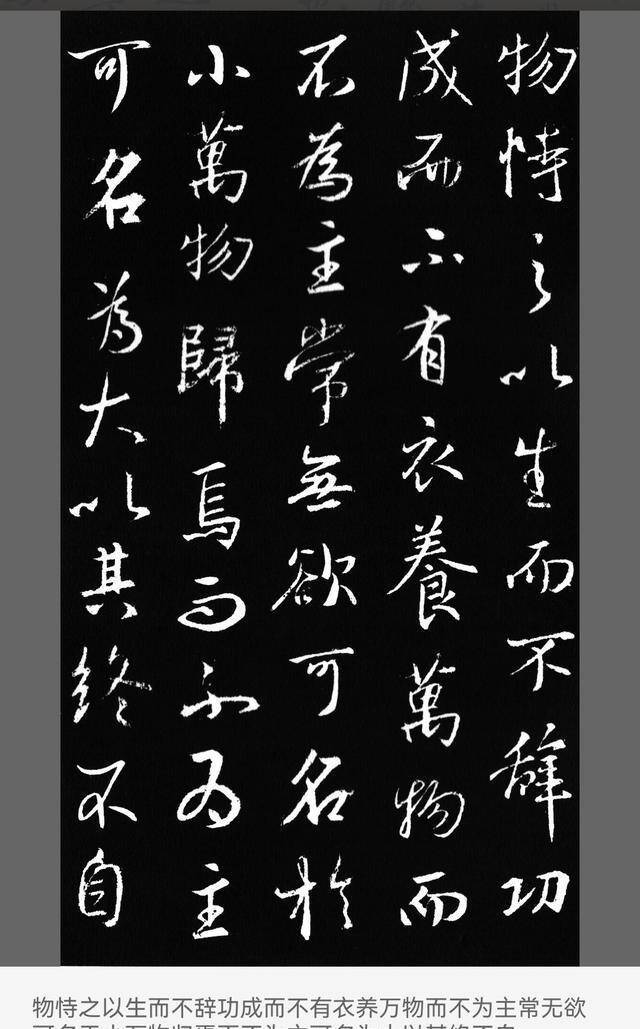 物恃之以生而不辭功
成而不有衣養萬物而
不為主常無欲可名於
小萬物歸焉而不為主
可名為大以其終不自
物恃之以生而不辞功成而不有衣养万物而不为主常无欲